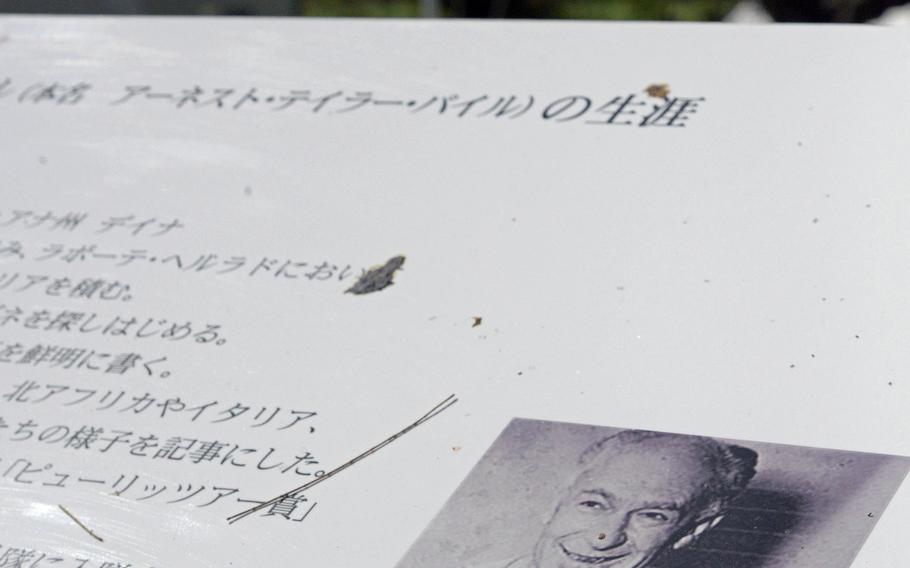 (本名 アーネスト・テイラー・パイル)の生涯
アナ州 デイナ
み、ラポーテ・ヘルラドにおい
リアを積む。
ネを探しはじめる。
を鮮明に書く。
北アフリカやイタリア、
たちの様子を記事にした。
「ピューリッツアー賞」
隊に入隊